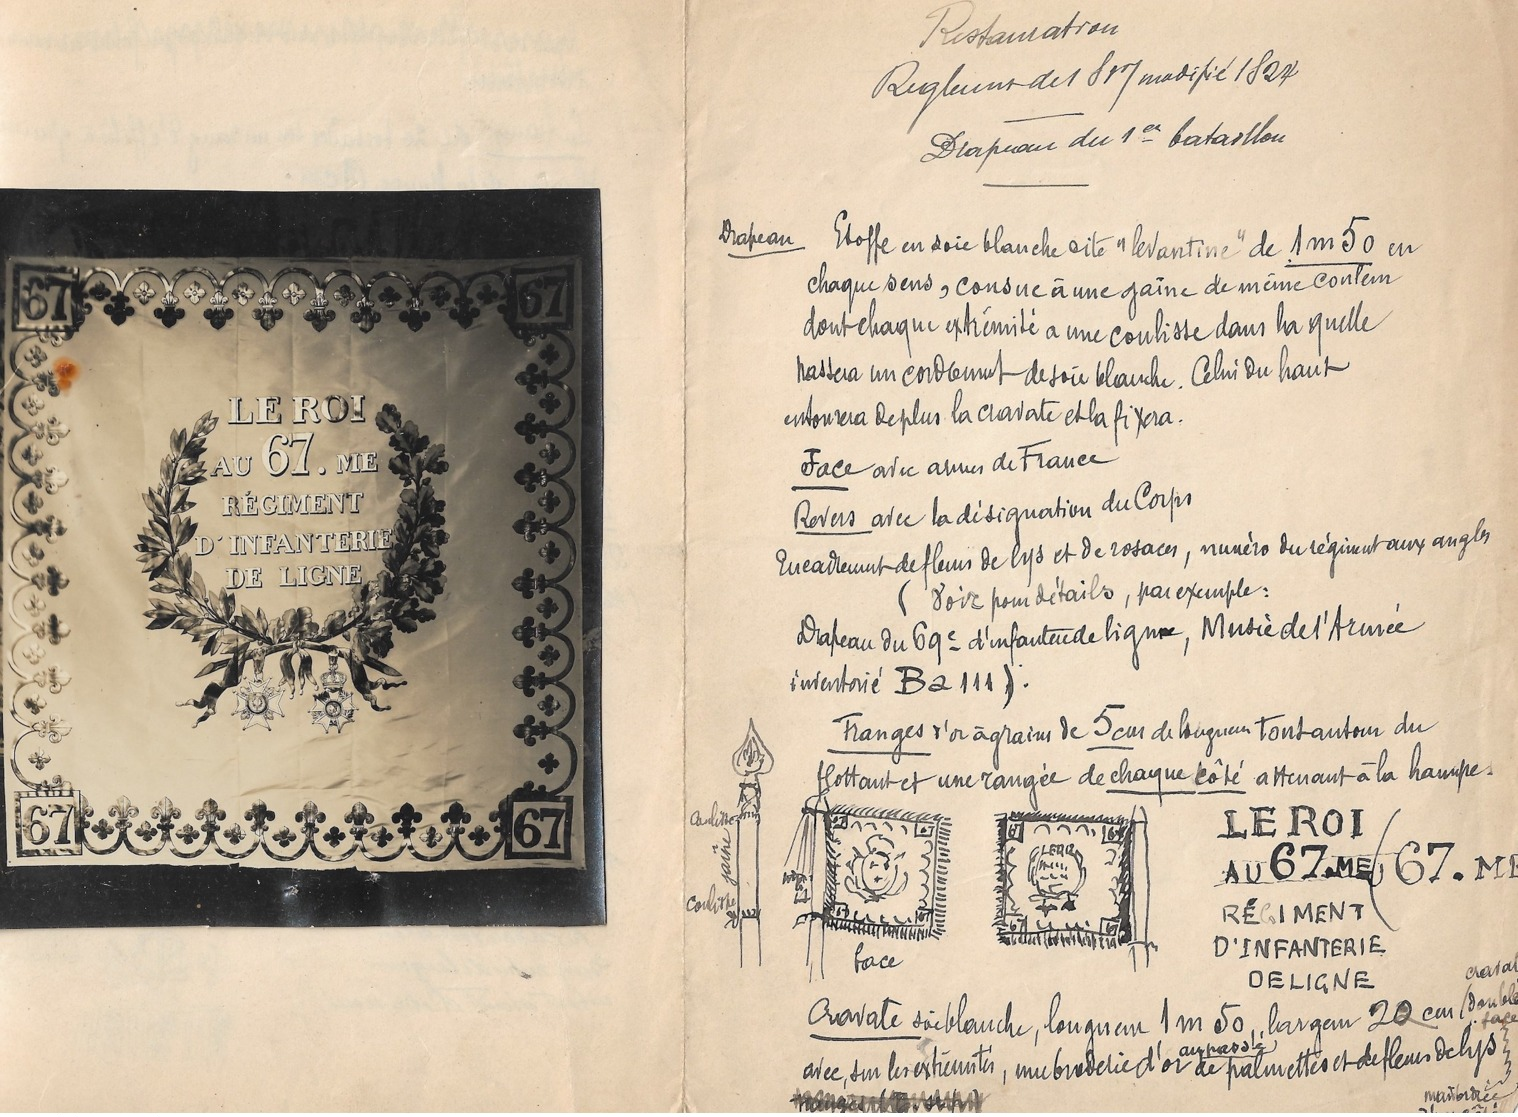 67
67
LE ROI
AU 67. ME
RÉGIMENT
D'INFANTERIE
DE LIGNE
67
67
Restauration
Reglement de 1817 modifié 1824
Drapeau du 1er bataillon
Drapeau
Etoffe en soie blanche dite "levantine" de 1m50 en
chaque sens, cousue à une gaîne de même couleur
dont chaque extrémité a une coulisse dans la quelle
passera un cordonnet de soie blanche. Celui du haut
entourera de plus la cravate et la fixera.
Face avec armes de France
Revers avec la désignation du Corps
Encadrement de fleurs de lys et de rosaces, numéro du régiment aux angles
(Voir pour détails, par exemple:
Drapeau du 69e d'infanterie de ligne, Musée de l'Armée
inventorié Ba 111).
Franges d'or à grains de 5cm de longueur tout autour du
flottant et une rangée de chaque côté attenant à la hampe.
coulisse
gaine
coulisse
67
67
67
67
face
LE ROI
67
67
LE ROI
AU 67. ME (67. ME
RÉGIMENT
D'INFANTERIE
DE LIGNE
Cravate soie blanche, longueur 1m50, largeur 20 cm (double
face
avec, sur les extrémités, une broderie d'or au passé de palmettes et de fleurs de lys
franges